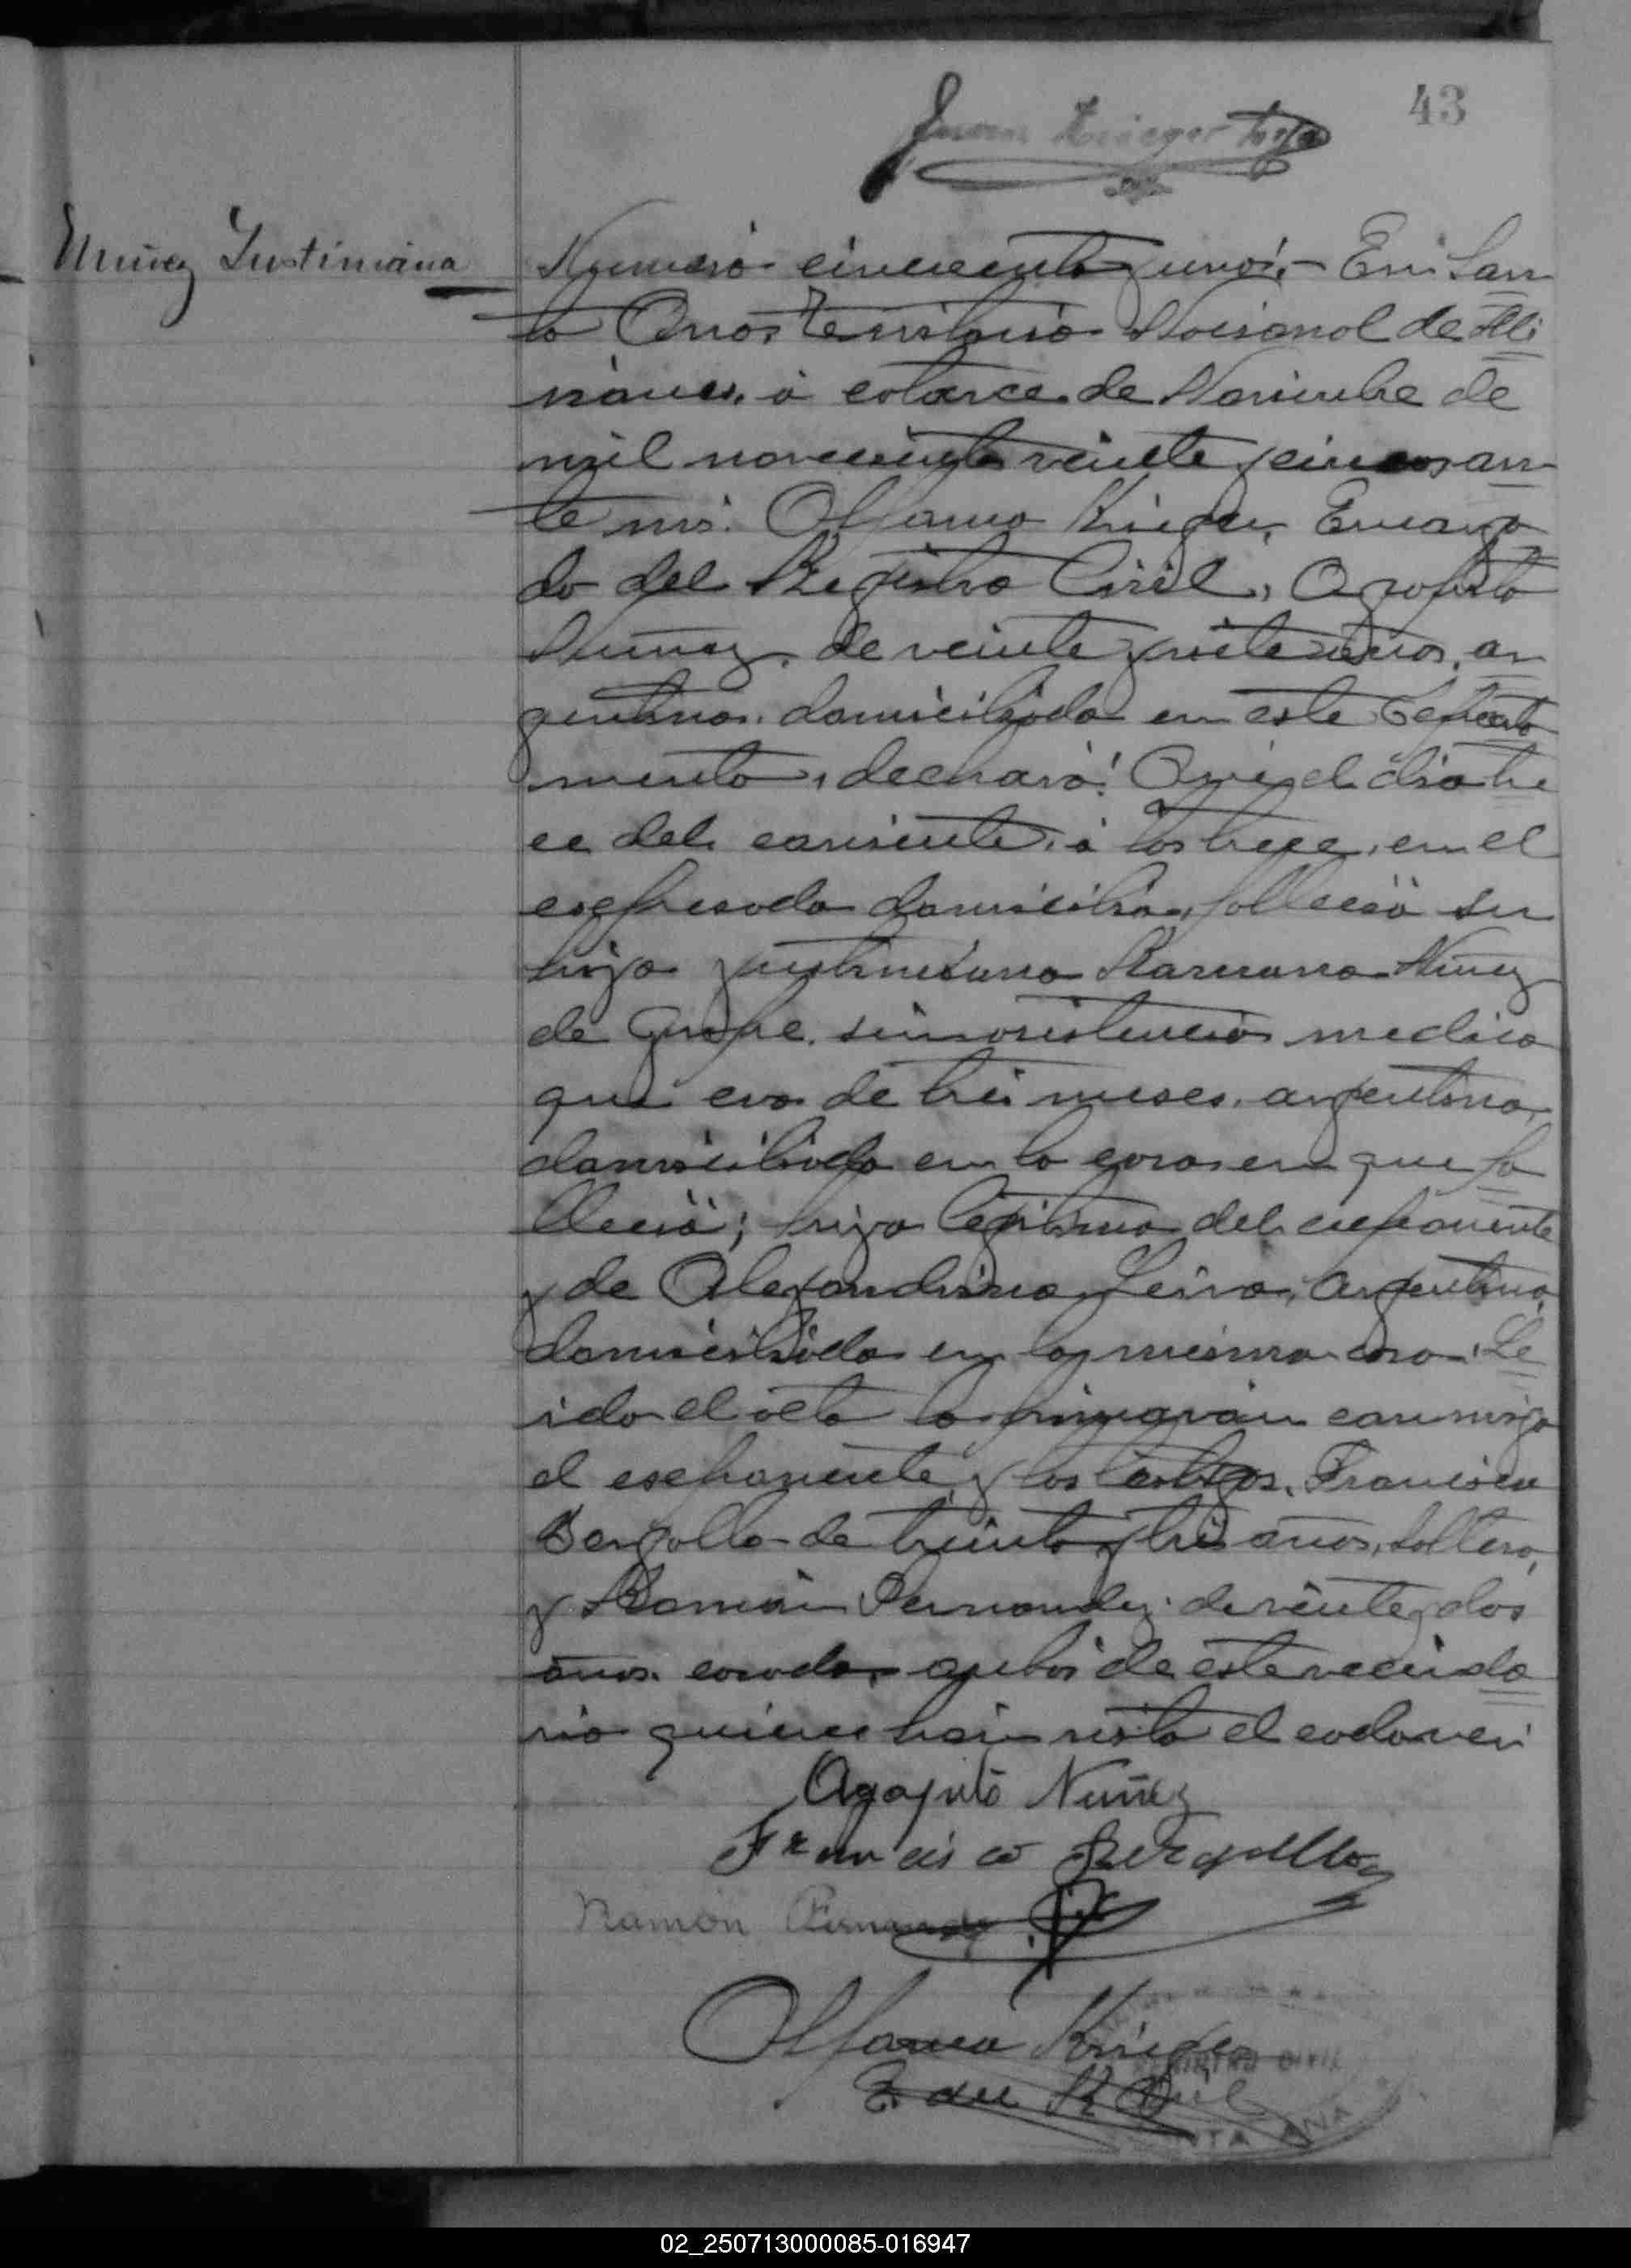 43
Nuñez Justiniana
Numero cincuenta y uno. En San
ta Ana, Territorio Nacional de Mi
siones, á catorce de Noviembre de
mil novecientos veinte y cinco, an
te mi: Krieger, Encarga
do del Registro Civil, Agapito
Nuñez, de veinte y siete años, ar
gentino, domiciliado en este departa
mento, declaró: Que el dia tre
ce del corriente, á las trece, en el
expresado domicilio, falleció su
hija Justiniana Ramona Nuñez
de Gripe, sin asistencia medica
que era de tres meses, argentina,
domiciliada en la casa en que fa
lleció; hija legitima del exponente
y de Alejandrina Leiva, argentina,
domiciliada en la misma casa. Le
ida el acta la firmaran conmigo
el exponente y los testigos, Francisco
Bergallo de treinta y tres años, soltero,
y Ramón Fernandez de veinte y dos
años, casado, ambos de este vecinda
rio quienes han visto el cadaver.
Agapito Nuñez
Francisco Bergallo
Ramón Fernandez
Krieger
E. del R. Civil
REGISTRO CIVIL
SANTA ANA
02_250713000085-016947